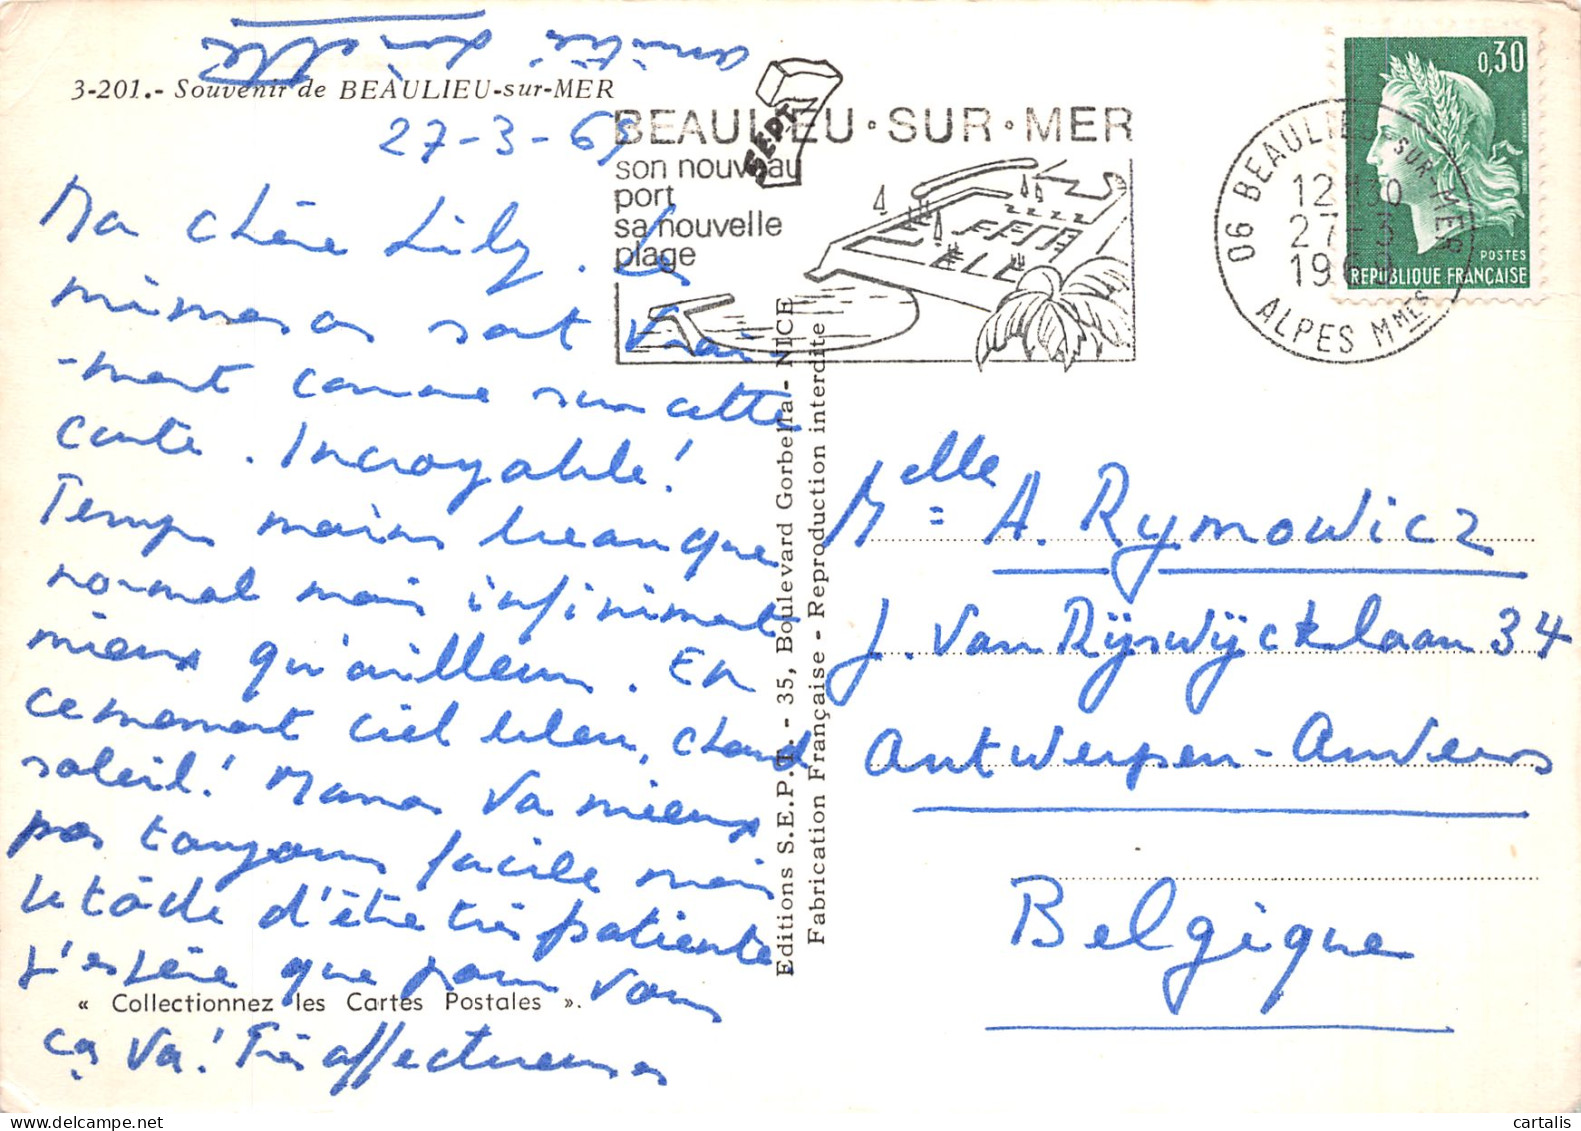 3-201.- Souvenir de BEAULIEU-sur-MER
27-3-69
Ma chère Lily. Les
mimosas sont vrai-
-ment comme sur cette
carte. Incroyable!
Temps moins beau que
normal mais infiniment
mieux qu'ailleurs. En
ce moment ciel bleu, chaud
soleil! Maman va mieux
pas toujours facile mais
je tâche d'être très patiente
J'espère que pour vous
« Collectionnez les Cartes Postales ».
ça va! Très affectueuses
amitié
BEAULIEU·SUR·MER
son nouveau
port
sa nouvelle
plage
SEPT
Editions S.E.P.T. - 35, Boulevard Gorbella - NICE
Fabrication Française - Reproduction interdite
06 BEAULIEU-SUR-MER
12H30
27-3
1969
ALPES MMES
0,30
POSTES
REPUBLIQUE FRANÇAISE
Melle A. Rymowicz
J. Van Rijswijcklaan 34
Antwerpen-Anvers
Belgique
cartalis